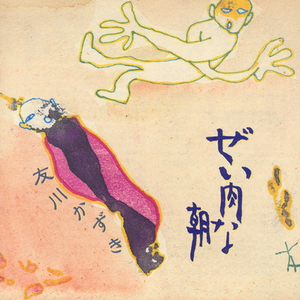 ぜい肉な
朝
友川かずき